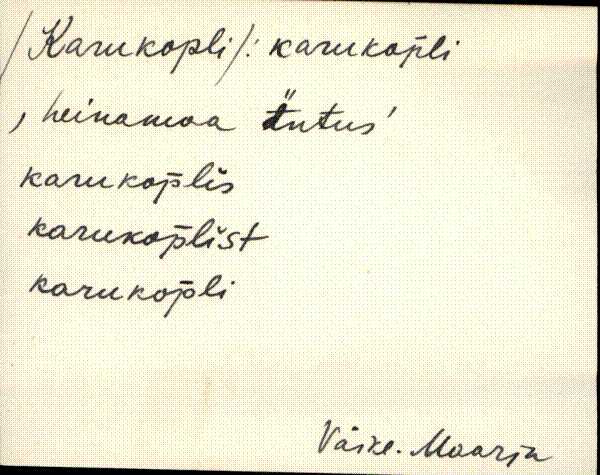 /Karukopli/: karukop̄li
, heinamaa üntus'
karukop̄lis
karukop̄list
karukop̄li
Väike-Maarja